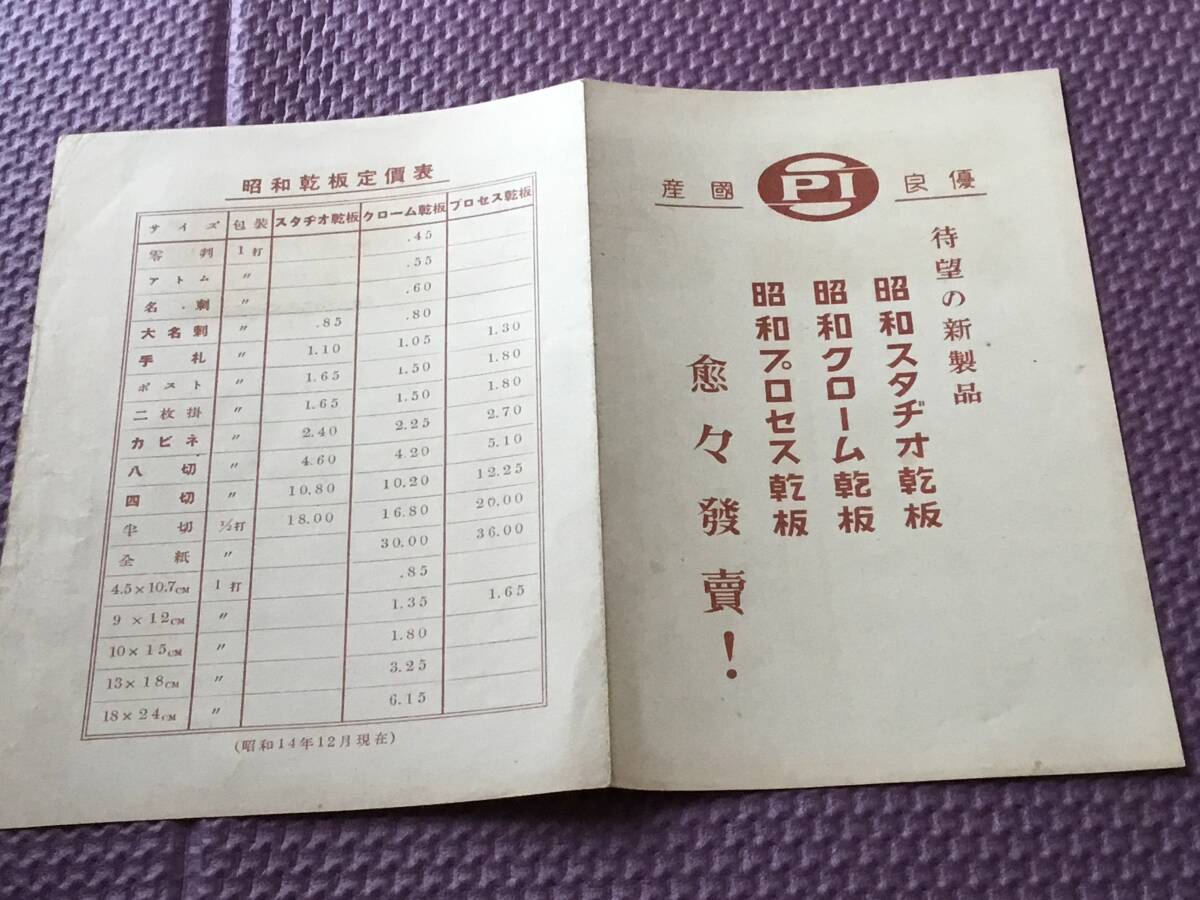 昭和乾板定價表
サイズ 包裝 スタヂオ乾板 クローム乾板 プロセス乾板
零判 1打 .45
アトム 〃 .55
名刺 〃 .60
大名刺 〃 .85 .80
手札 〃 1.10 1.05 1.30
ポスト 〃 1.65 1.50 1.80
二枚掛 〃 1.65 1.50 1.80
カビネ 〃 2.40 2.25 2.70
八切 〃 4.60 4.20 5.10
四切 〃 10.80 10.20 12.25
半切 ½打 18.00 16.80 20.00
全紙 〃 30.00 36.00
4.5×10.7CM 1打 .85
9×12CM 〃 1.35 1.65
10×15CM 〃 1.80
13×18CM 〃 3.25
18×24CM 〃 6.15
(昭和14年12月現在)
優良 PI 國産
待望の新製品
昭和スタヂオ乾板
昭和クローム乾板
昭和プロセス乾板
愈々發賣!